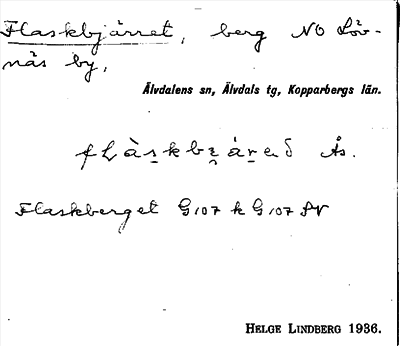 Flaskbjärret, berg NO Löv-
näs by,
Älvdalens sn, Älvdals tg, Kopparbergs län.
Ås.
Flaskberget G107 k G107 NV
HELGE LINDBERG 1936.